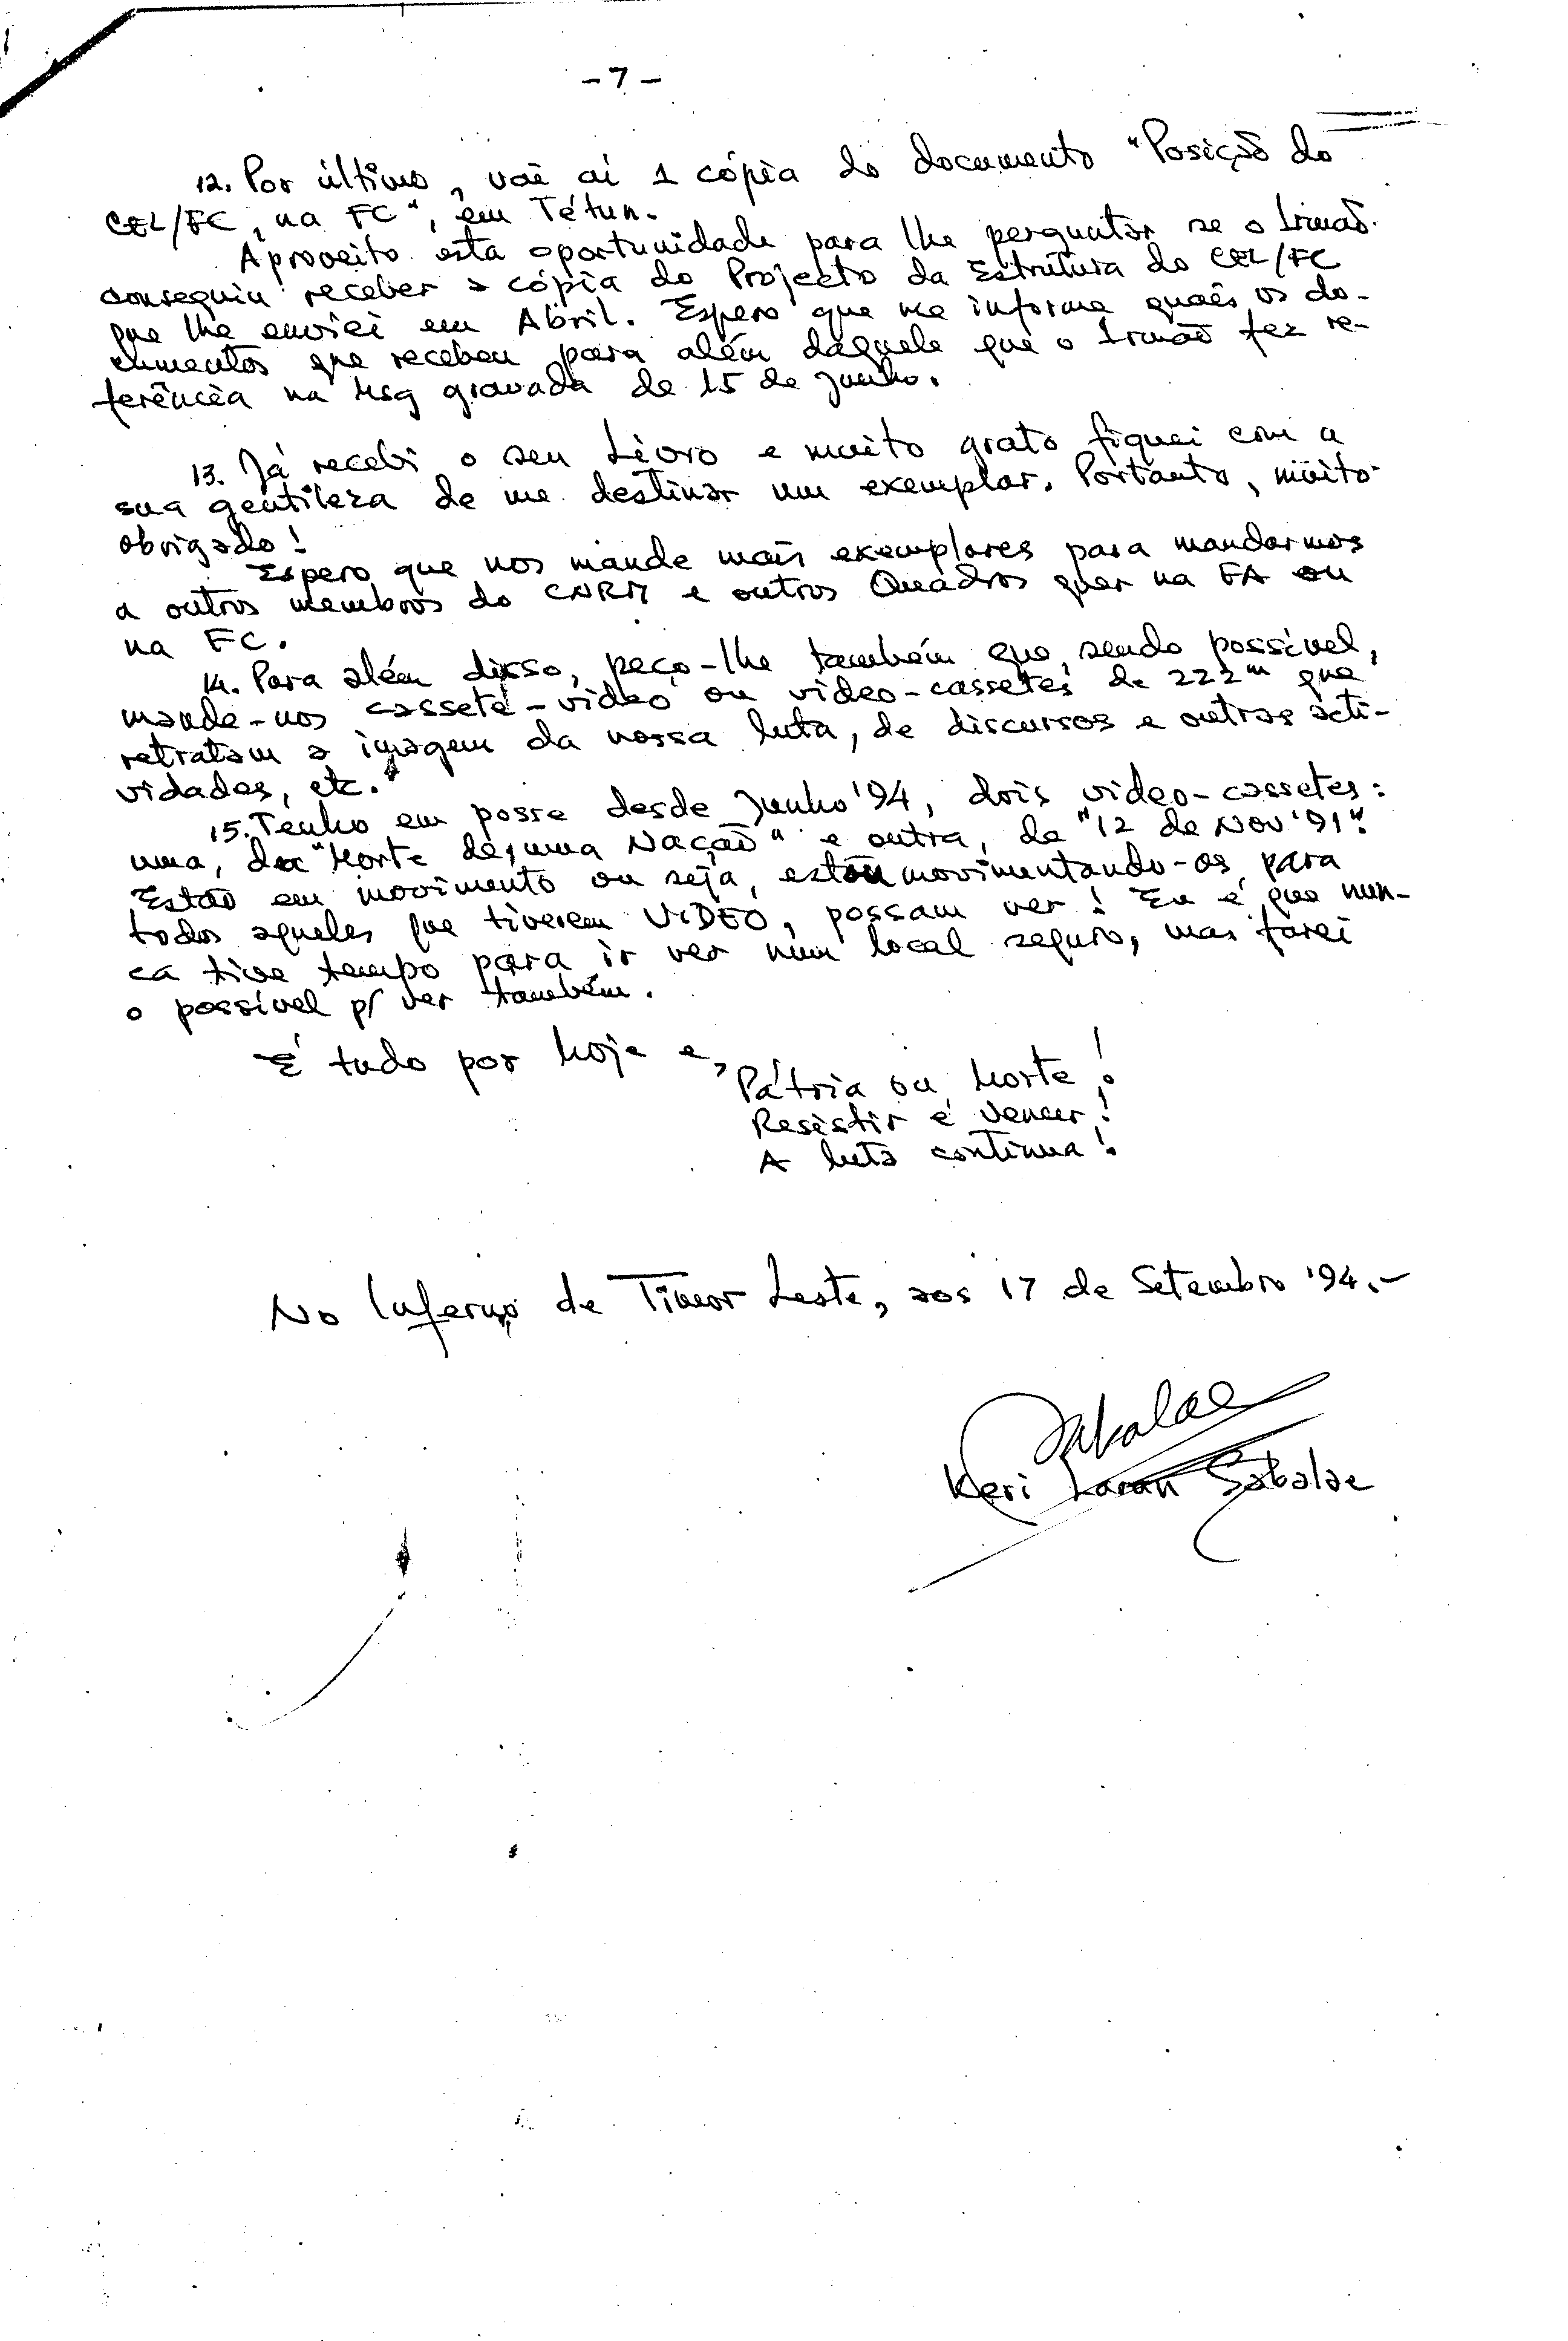 -7-
12. Por último, vai aí 1 cópia do documento "Posição do
CEL/FC, na FC", em Tétun.
Aproveito esta oportunidade para lhe perguntar se o Irmão
conseguiu receber a cópia do Projecto da Estrutura do CEL/FC
que lhe enviei em Abril. Espero que me informe quais os do-
cumentos que recebeu para além daquele que o Irmão fez re-
ferência na Msg gravada de 15 de Junho.
13. Já recebi o seu Livro e muito grato fiquei com a
sua gentileza de me destinar um exemplar. Portanto, muito
obrigado!
Espero que nos mande mais exemplares para mandarmos
a outros membros do CNRM e outros Quadros quer na FA ou
na FC.
14. Para além disso, peço-lhe também que, sendo possível,
mande-nos cassete-video ou video-cassetes de 222m que
retratam a imagem da nossa luta, de discursos e outras acti-
vidades, etc.
15. Tenho em posse desde Junho '94, dois video-cassetes:
uma, da "Morte de uma Nação" e outra, de "12 de Nov '91".
Estão em movimento ou seja, estão movimentando-os para
todos aqueles que tiverem VIDEO, possam ver! Eu é que nun-
ca tive tempo para ir ver num local seguro, mas farei
o possível p/ ver também.
É tudo por hoje e,
Pátria ou Morte!
Resistir é Vencer!
A luta continua!
No Inferno de Timor Leste, aos 17 de Setembro '94.-
Sabalae
Keri Laran Sabalae